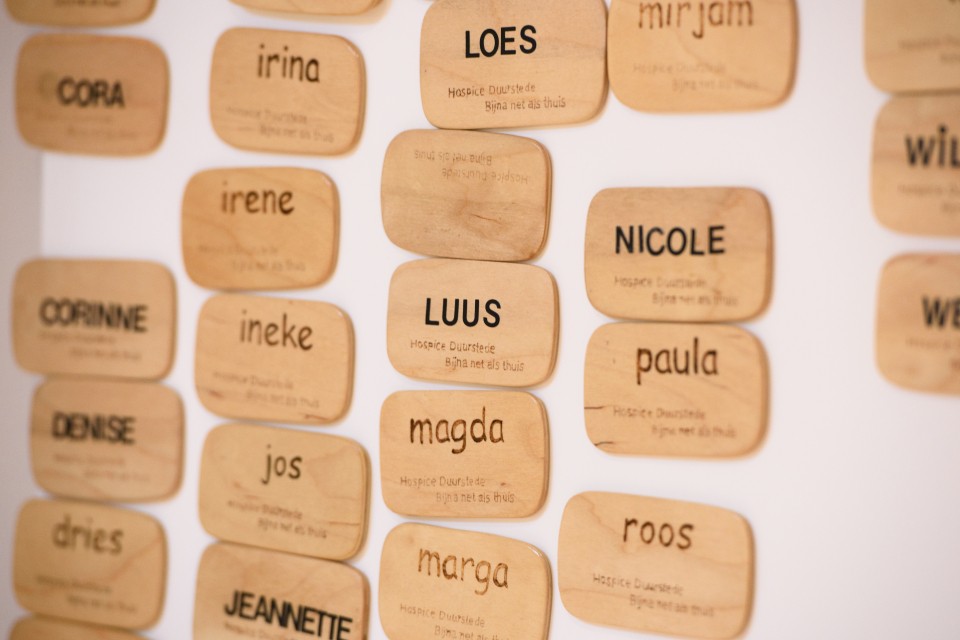 CORA
CORINNE
DENISE
dries
irina
Hospice Duurstede
Bijna net als thuis
irene
Bijna net als thuis
ineke
Hospice Duurstede
Bijna net als thuis
jos
Hospice Duurstede
Bijna net als thuis
JEANNETTE
Hospice Duurstede
LOES
Hospice Duurstede
Bijna net als thuis
Hospice Duurstede
Bijna net als thuis
LUUS
Hospice Duurstede
Bijna net als thuis
magda
Hospice Duurstede
Bijna net als thuis
marga
Hospice Duurstede
Bijna net als thuis
mirjam
Hospice Duurstede
Bijna net als thuis
NICOLE
Hospice Duurstede
Bijna net als thuis
paula
Hospice Duurstede
Bijna net als thuis
roos
Hospice Duurstede
Bijna net als thuis